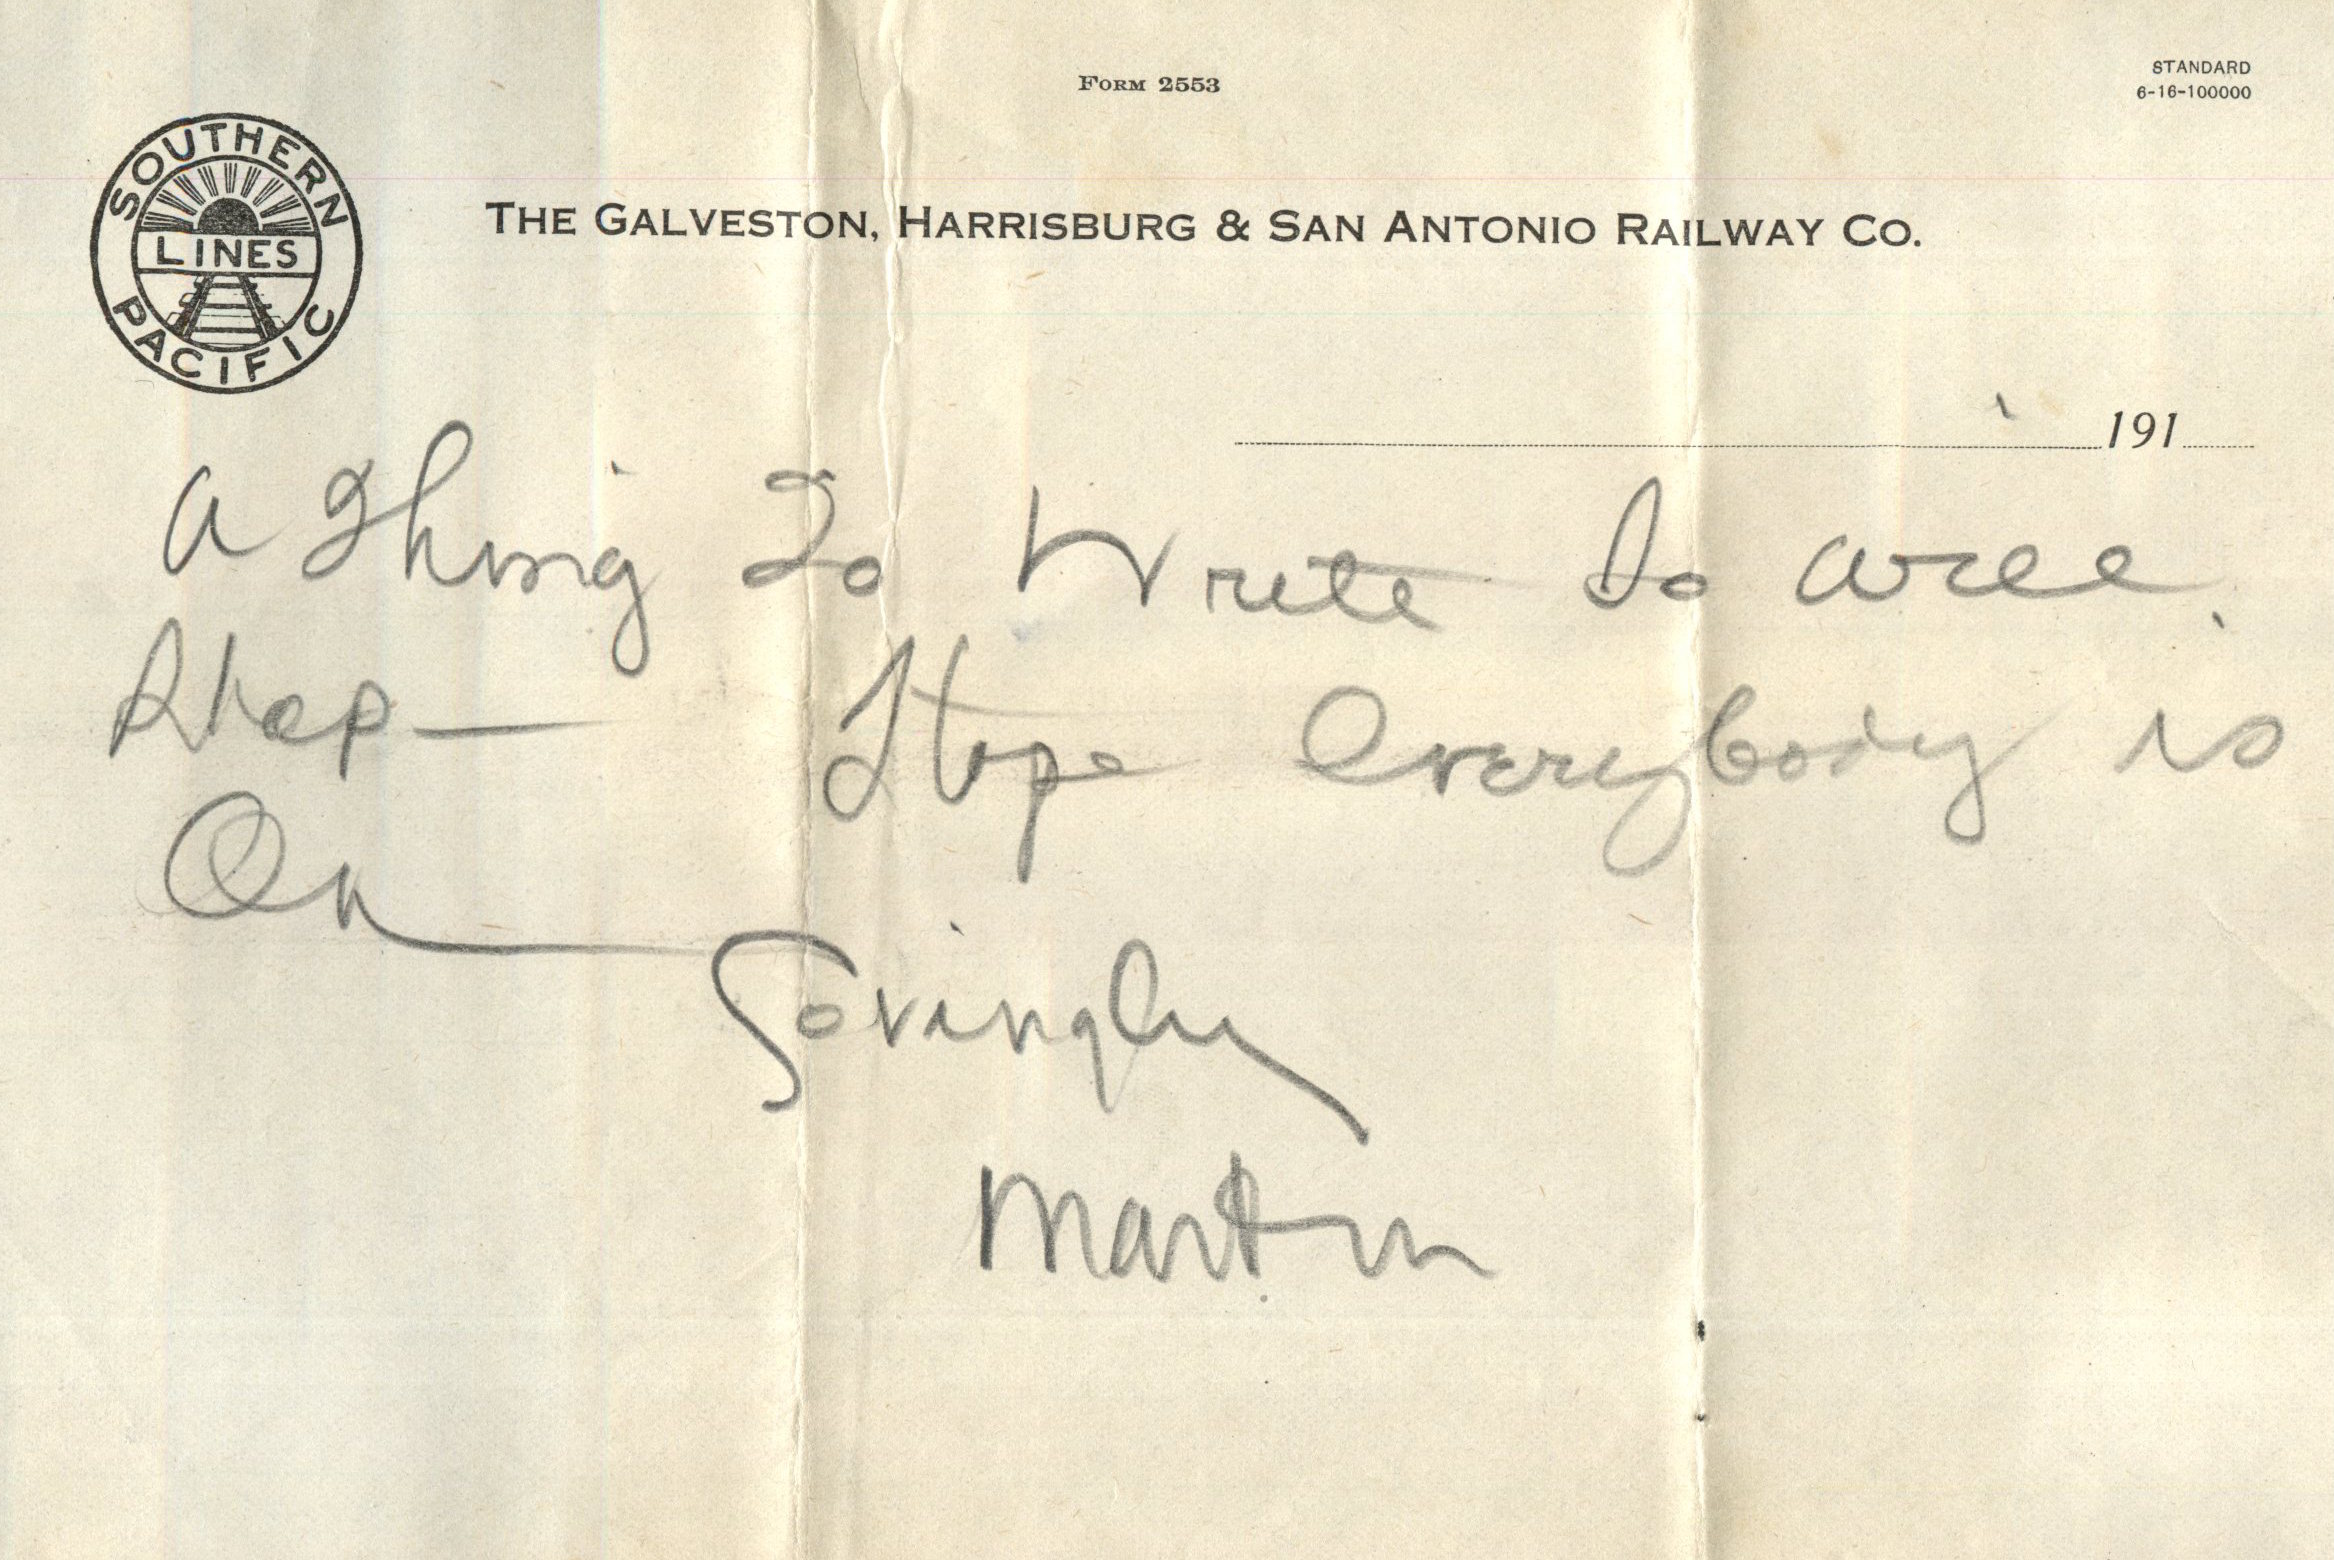 FORM 2553
STANDARD
6-16-100000
SOUTHERN
LINES
PACIFIC
THE GALVESTON, HARRISBURG & SAN ANTONIO RAILWAY CO.
191
A Thing To Write So will
Stop— Hope Everybody is
OK
Lovingly
Martin